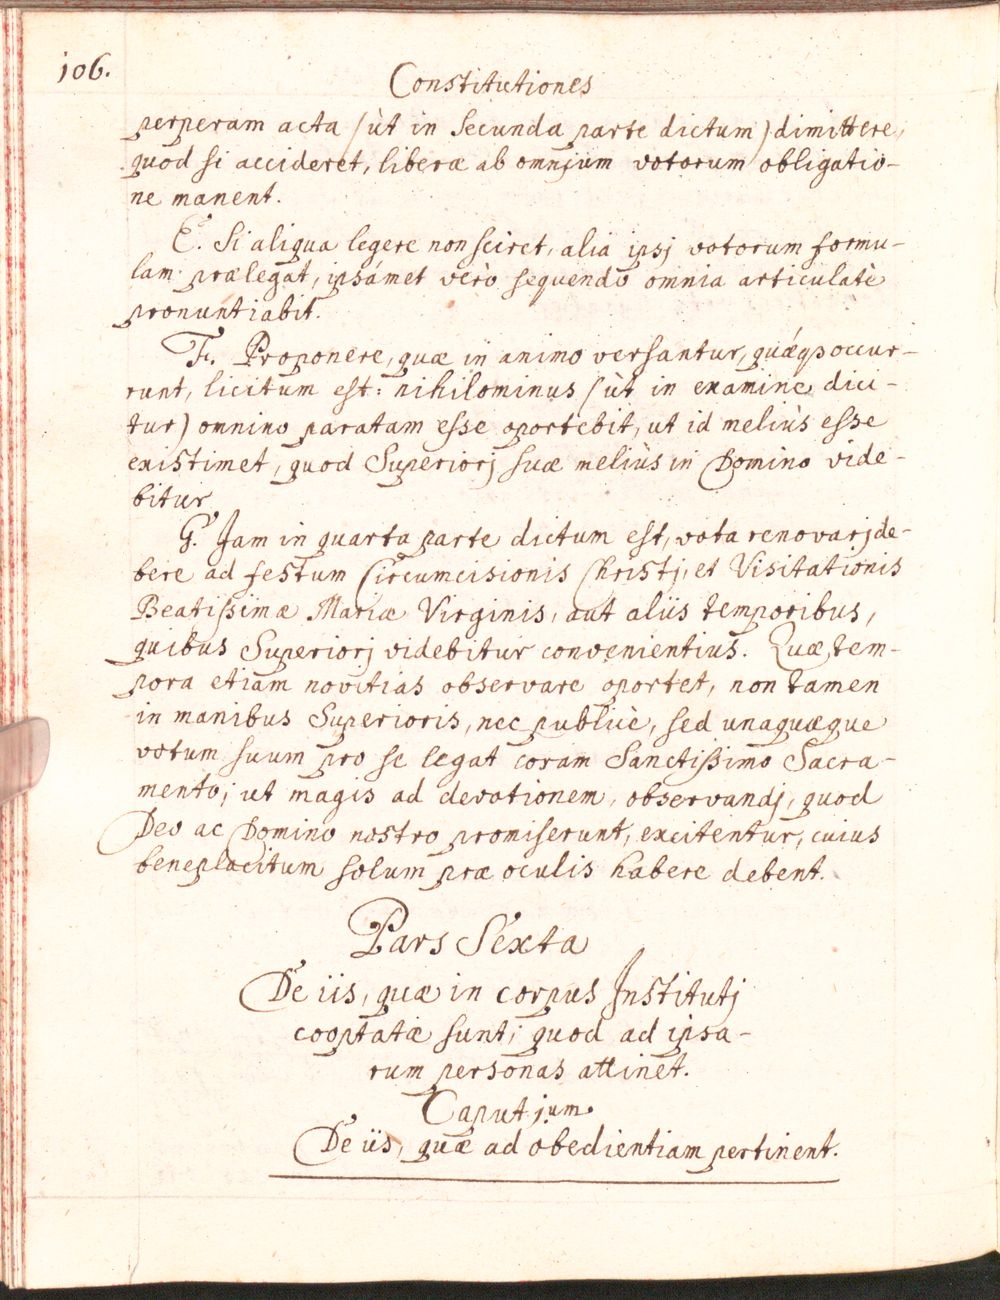 106.
Constitutiones
perperam acta (ùt in secunda parte dictum) dimittere,
quod si accideret, liberæ ab omnium votorum obligatio-
ne manent.
E. Si aliqua legere non sciret, alia ipsj votorum formu-
lam prælegat, ipsámet verò sequendo omnia articulatè
pronuntiabit.
F. Proponere, quæ in animo versantur, quǽqɜ occur-
runt, licitum est: nihilominus (ùt in examine dici-
tur) omnino paratam esse oportebit, ut id meliùs esse
existimet, quod Superiorj suæ meliùs in Domino vide-
bitur.
G. Jam in quarta parte dictum est, vota renovarj de-
bere ad festum Circumcisionis Christj, et Visitationis
Beatissimæ Mariæ Virginis, aut aliis temporibus,
quibus Superiorj videbitur convenientius. Quæ tem-
pora etiam novitias observare oportet, non tamen
in manibus Superioris, nec publicè, sed unaquæque
votum suum pro se legat coram Sanctissimo Sacra-
mento; ut magis ad devotionem, observandj, quod
Deo ac Domino nostro promiserunt, excitentur, cuius
beneplacitum solum præ oculis habere debent.
Pars Sexta
De iis, quæ in corpus Institutj
cooptatæ sunt; quod ad ipsa-
rum personas attinet.
Caput j.um
De iis, quæ ad obedientiam pertinent.